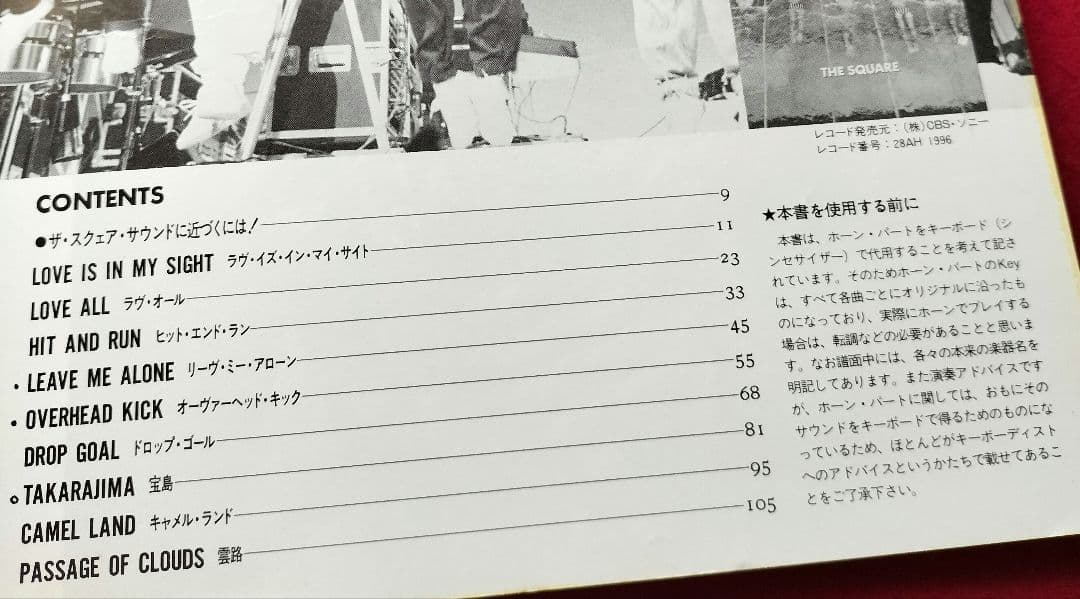 THE SQUARE
レコード発売元：(株)CBS・ソニー
レコード番号：28AH 1996
CONTENTS
●ザ・スクェア・サウンドに近づくには! 9
LOVE IS IN MY SIGHT ラヴ・イズ・イン・マイ・サイト 11
LOVE ALL ラヴ・オール 23
HIT AND RUN ヒット・エンド・ラン 33
・LEAVE ME ALONE リーヴ・ミー・アローン 45
・OVERHEAD KICK オーヴァーヘッド・キック 55
DROP GOAL ドロップ・ゴール 68
○TAKARAJIMA 宝島 81
CAMEL LAND キャメル・ランド 95
PASSAGE OF CLOUDS 雲路 105
★本書を使用する前に
本書は、ホーン・パートをキーボード（シ
ンセサイザー）で代用することを考えて記さ
れています。そのためホーン・パートのKey
は、すべて各曲ごとにオリジナルに沿ったも
のになっており、実際にホーンでプレイする
場合は、転調などの必要があることと思いま
す。なお譜面中には、各々の本来の楽器名を
明記してあります。また演奏アドバイスです
が、ホーン・パートに関しては、おもにその
サウンドをキーボードで得るためのものにな
っているため、ほとんどがキーボーディスト
へのアドバイスというかたちで載せてあるこ
とをご了承下さい。